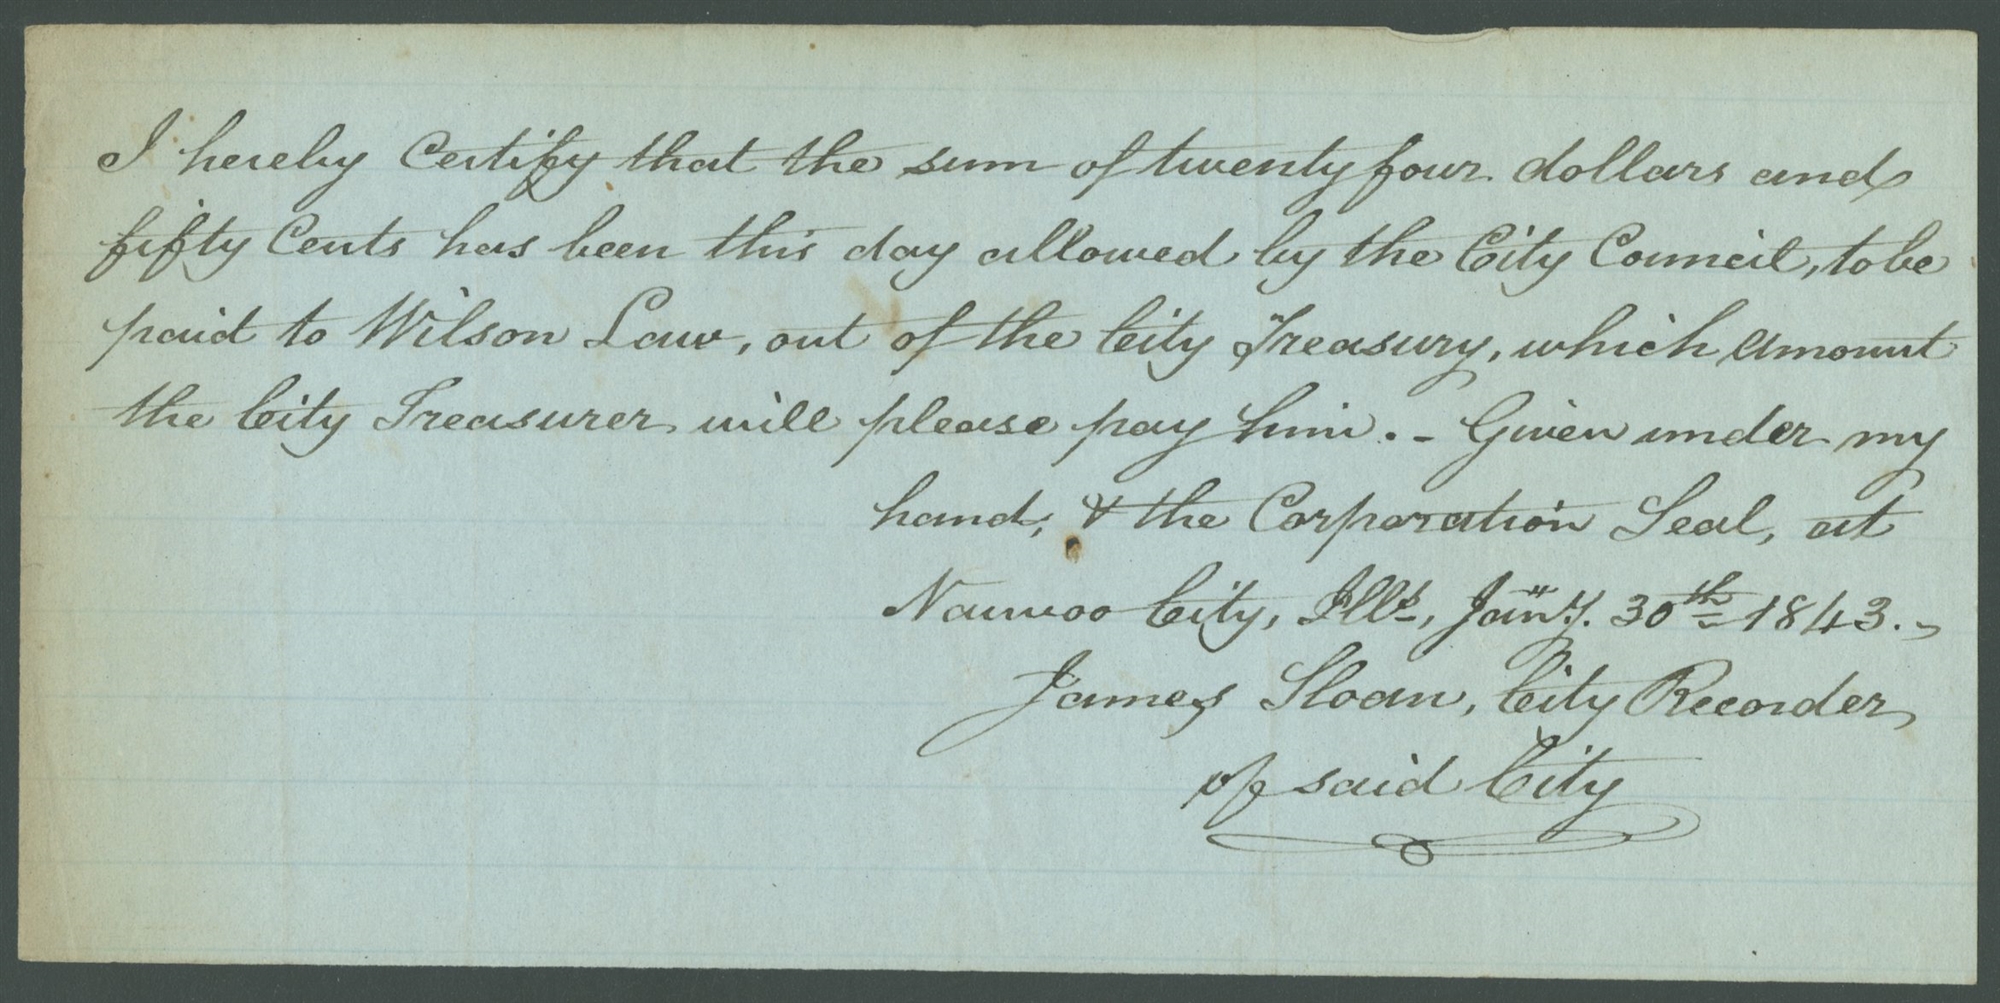 I hereby Certify that the sum of twenty four dollars and
fifty Cents has been this day allowed by the City Council, to be
paid to Wilson Law, out of the City Treasury, which amount
the City Treasurer will please pay him. – Given under my
hand, & the Corporation Seal, at
Nauvoo City, Ills, Jany. 30th 1843. –
James Sloan, City Recorder
of said City